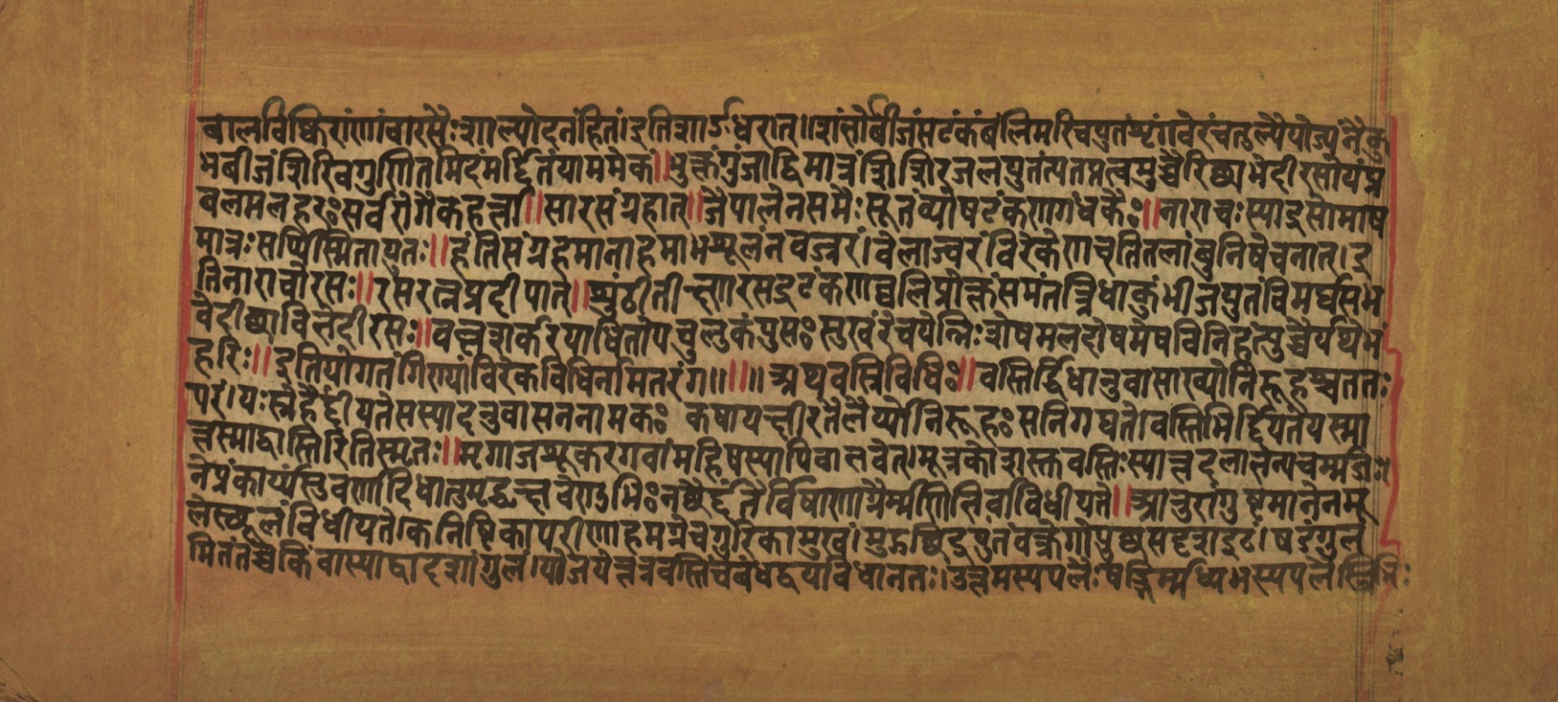 बालविष्किराणांवारसैःशाल्योदनंहितं।इतिशार्ङ्गधरात्॥रांसौर्बीजंसटंकंबलिमरिचयुतंशृंगवेरंचतुल्यैयोज्यंनैकु
भबीजंशिरिवगुणितमिदंमर्द्दितंयाममेकं॥भुक्तंगुंजाद्विमात्रंशिशिरजलयुतंत्यतप्रत्वमुच्चैरिछाभेदीरसोयंप्र
बलमलहरःसर्वरोगैकहर्त्ता॥सारसंग्रहात्॥जैपालेनसमैःसूतंव्योषटंकणगंधकैः॥नाराचःस्याद्रसोमाष
मात्रःसर्प्पिस्मितायुतः॥हंतिसंग्रहमानाहमामशूलंनवज्वरं।वेलाज्वरंविरेकेणचतितलांबुनिषेचनात्।इ
तिनाराचोरसः॥रसरत्नप्रदीपात्॥शुंठीतीक्ष्णरसटंकणवलिप्रोक्तंसमंतत्रिधाकुंभीजयुतंविमर्घसभ
वेदीछाविभेदीरसः॥वल्लशर्करयाधितोयचुलुकंपुंसःसुखंरेचयेन्निःशेषमलदोषमेषविनिहत्युच्चैर्यथेभं
हरिः॥इतियोगतंगिण्यांविरेकविधिर्नामतरंग॥॥॥अथवस्तिविधिः॥वस्तिर्द्दिधानुवासाख्योनिरूहश्चततः
परं।यःस्नेहैर्द्दीयतेसस्यादनुवासननामकः कषायक्षीरतैलैर्य्योनिरूहःसनिगद्यते।वस्तिभिर्द्दियतेयस्मा
त्तस्माद्वास्तिरितिस्मृतः॥मृगाजशूकरगवांमहिषस्यापिवालवेत्।मूत्रकोशस्तवस्तिःस्यात्तदलालेत्पचर्म्मजः॥
नेत्रंकार्य्यंसुवर्णादिधातुमृद्वक्षवेणुभिःनष्ठैर्द्दंतैर्विषाणाग्रैर्म्मणितिर्वाविधीयते॥आतुरांगुष्टमानेनमू
लेस्थूलंविधीयते।कनिष्टिकापरीणाहमग्रेचगुटिकामुखं।मुऊछिद्रयुतंवक्त्रेगोपुछसदृशंदृढं।षडंगुल
मितंतच्चैकिंवास्याद्वादशांगुलं।योजयेत्तत्रवस्तिंचबंधद्वयविधानतः।उत्तमस्यपलैःषड्भिर्म्मध्यभस्यपलैस्त्रिभिः